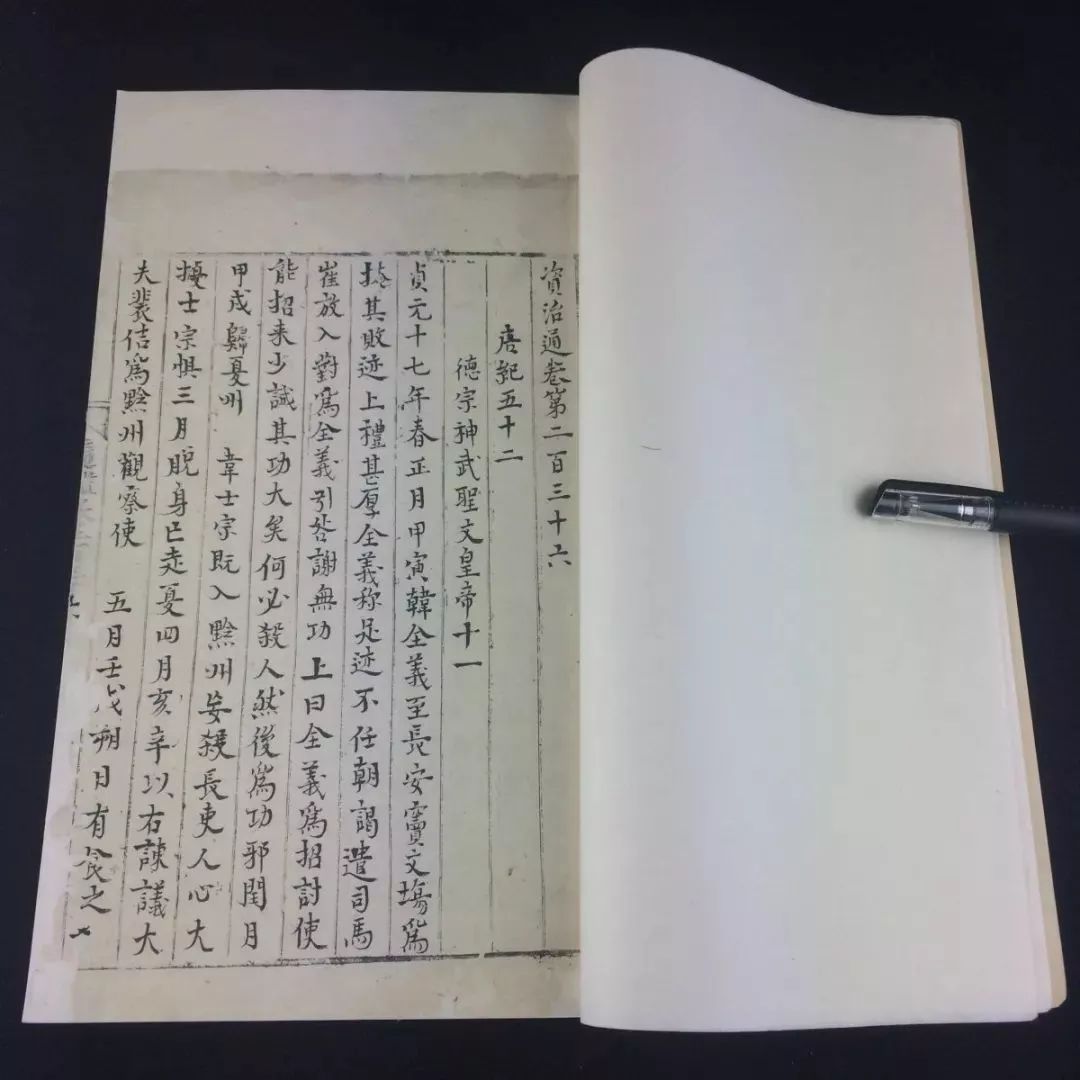 資治通卷第二百三十六
唐紀五十二
德宗神武聖文皇帝十一
貞元十七年春正月甲寅韓全義至長安竇文場爲
掩其敗迹上禮甚厚全義称足迹不任朝謁遣司馬
崔放入對爲全義引咎謝無功上曰全義爲招討使
能招来少誠其功大矣何必殺人然後爲功邪閏月
甲戍歸夏州 韋士宗既入黔州妄殺長吏人心大
擾士宗惧三月脫身亡走夏四月亥辛以右諫議大
夫裴佶爲黔州觀察使 五月壬戌朔日有食之